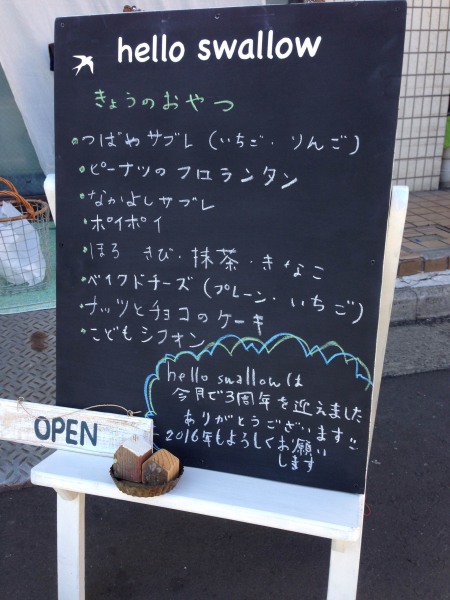 hello swallow
きょうのおやつ
・つばめサブレ (いちご・りんご)
・ピーナツのフロランタン
・なかよしサブレ
・ポイポイ
・ほろ きび・抹茶・きなこ
・ベイクドチーズ (プレーン・いちご)
・ナッツとチョコのケーキ
・こどもシフォン
hello swallowは
今月で3周年を迎えました
ありがとうございます
2016年もよろしくお願い
します
OPEN